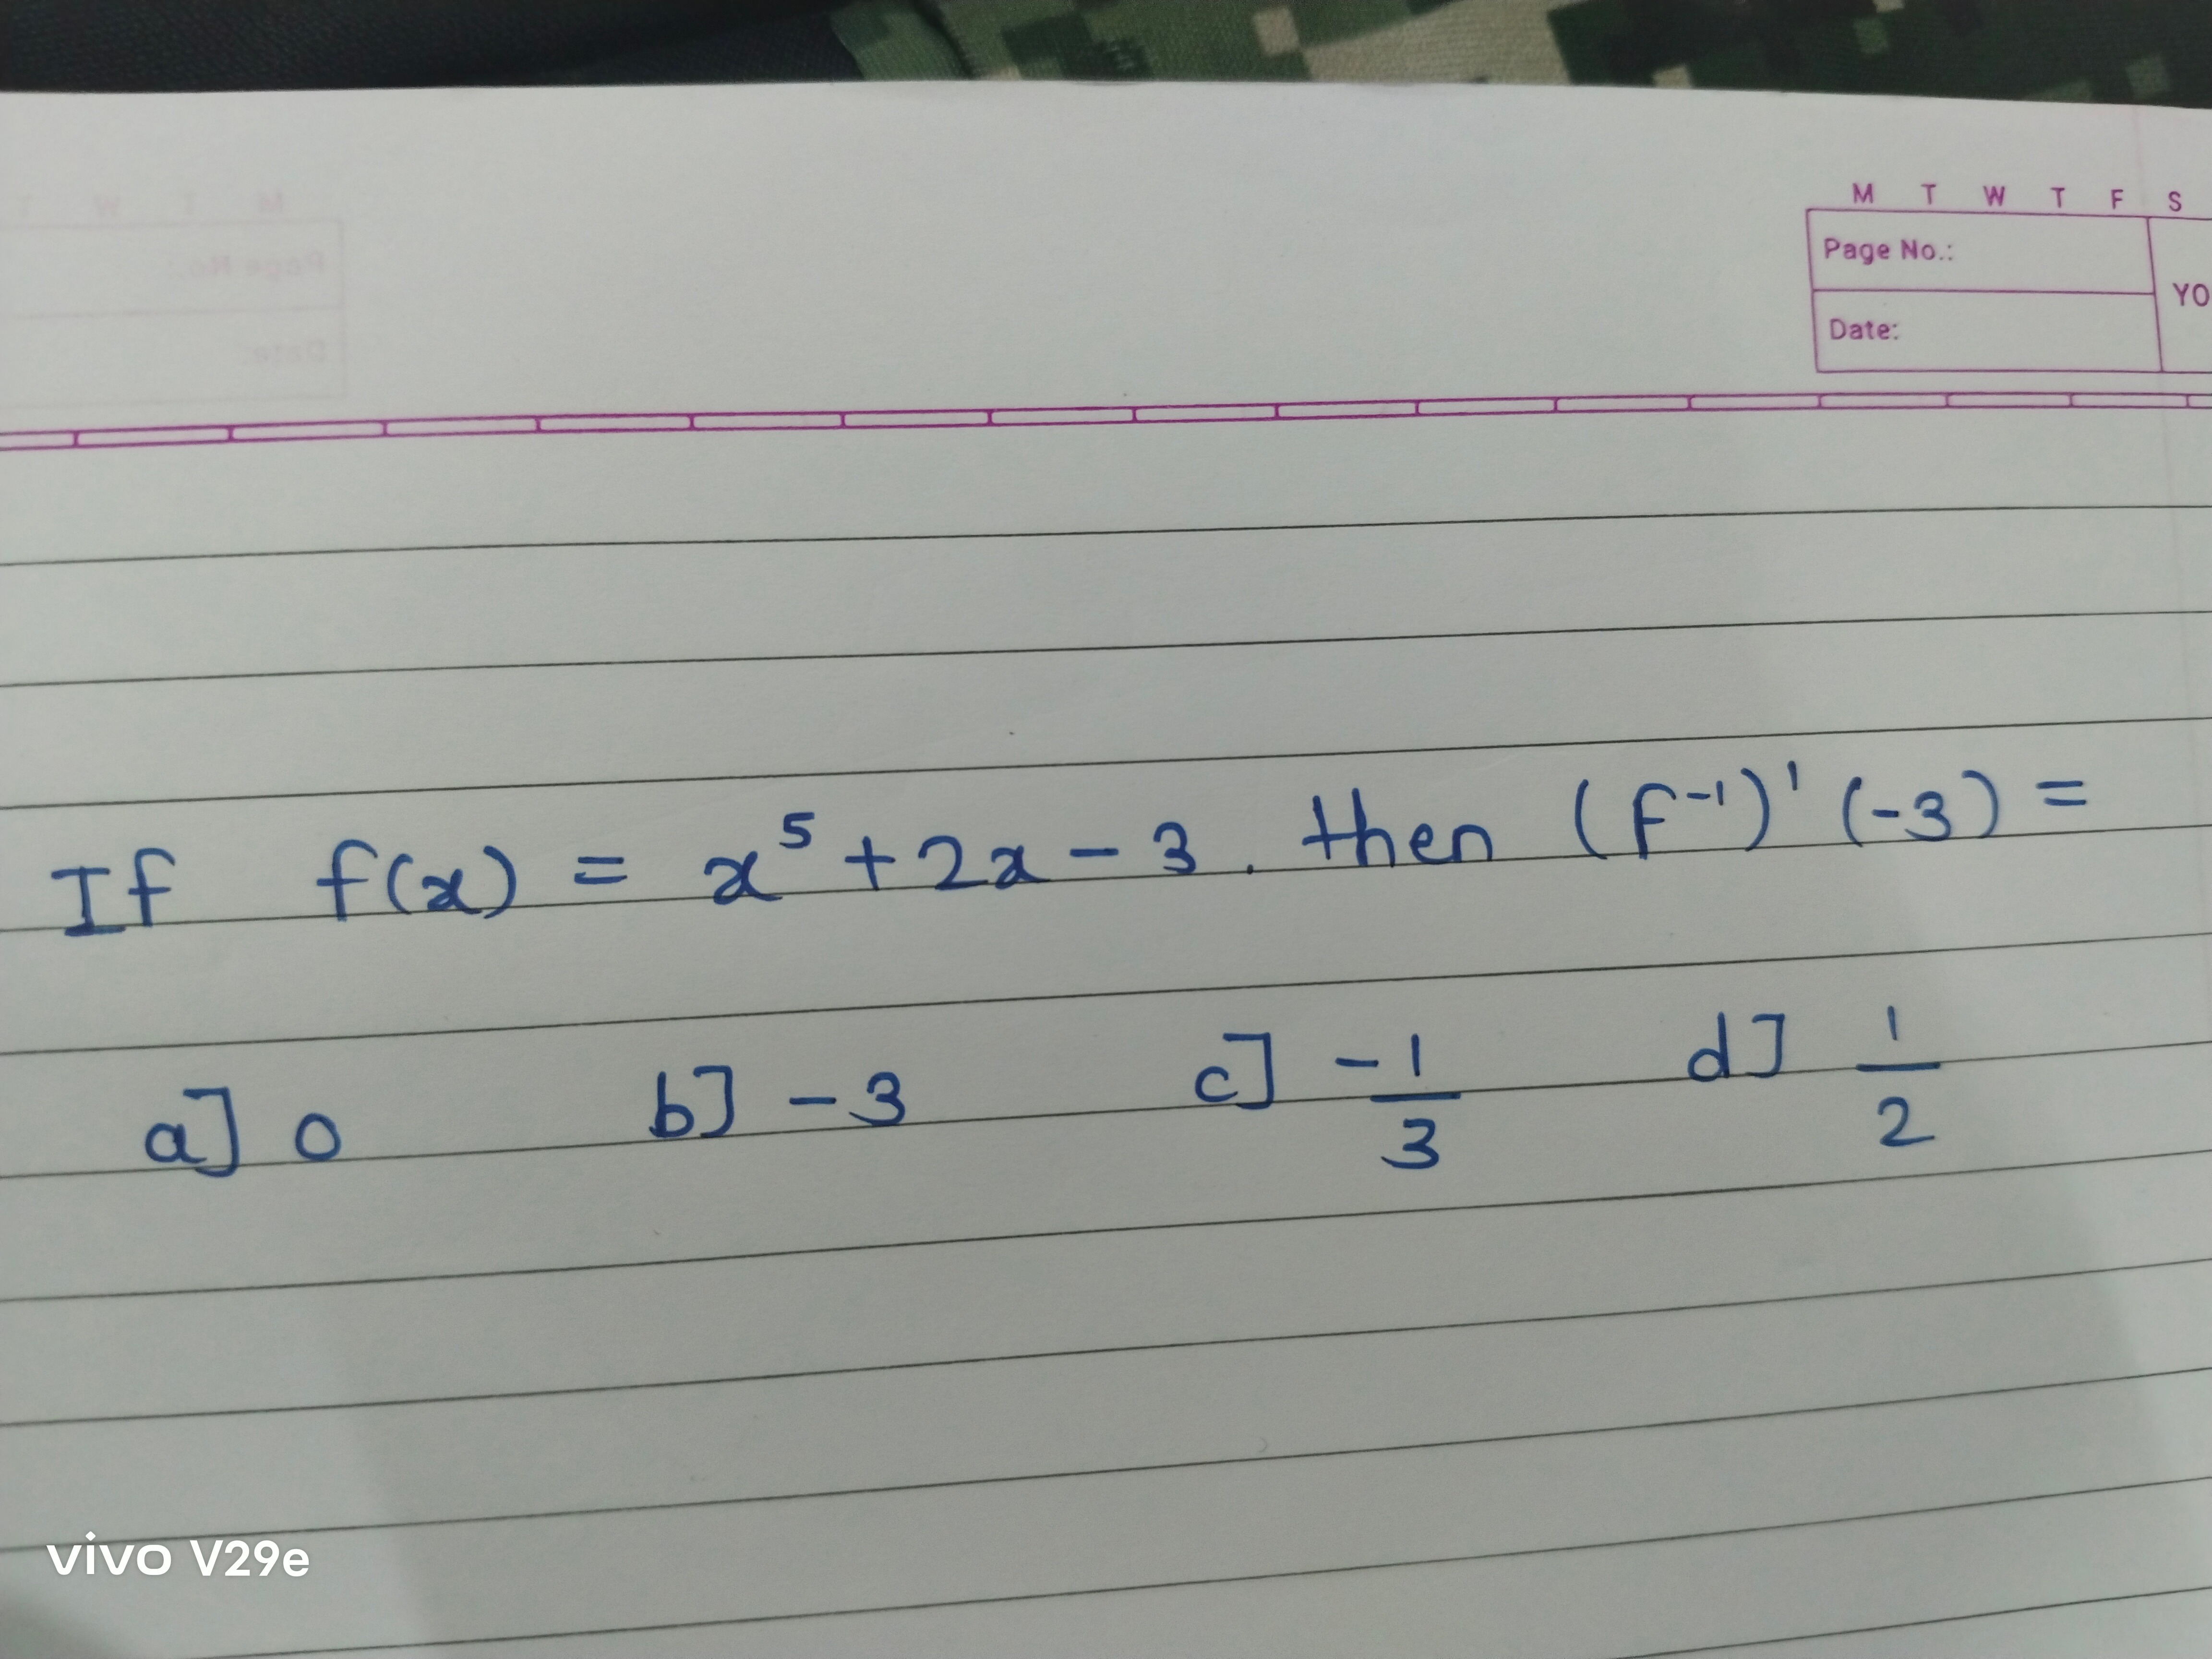 M T W T F S
Page No.:
YO
Date:
If f(x) = x⁵ + 2x - 3. then (f⁻¹)' (-3) =
a] 0 b] -3 c] -1/3 d] 1/2
vivo V29e